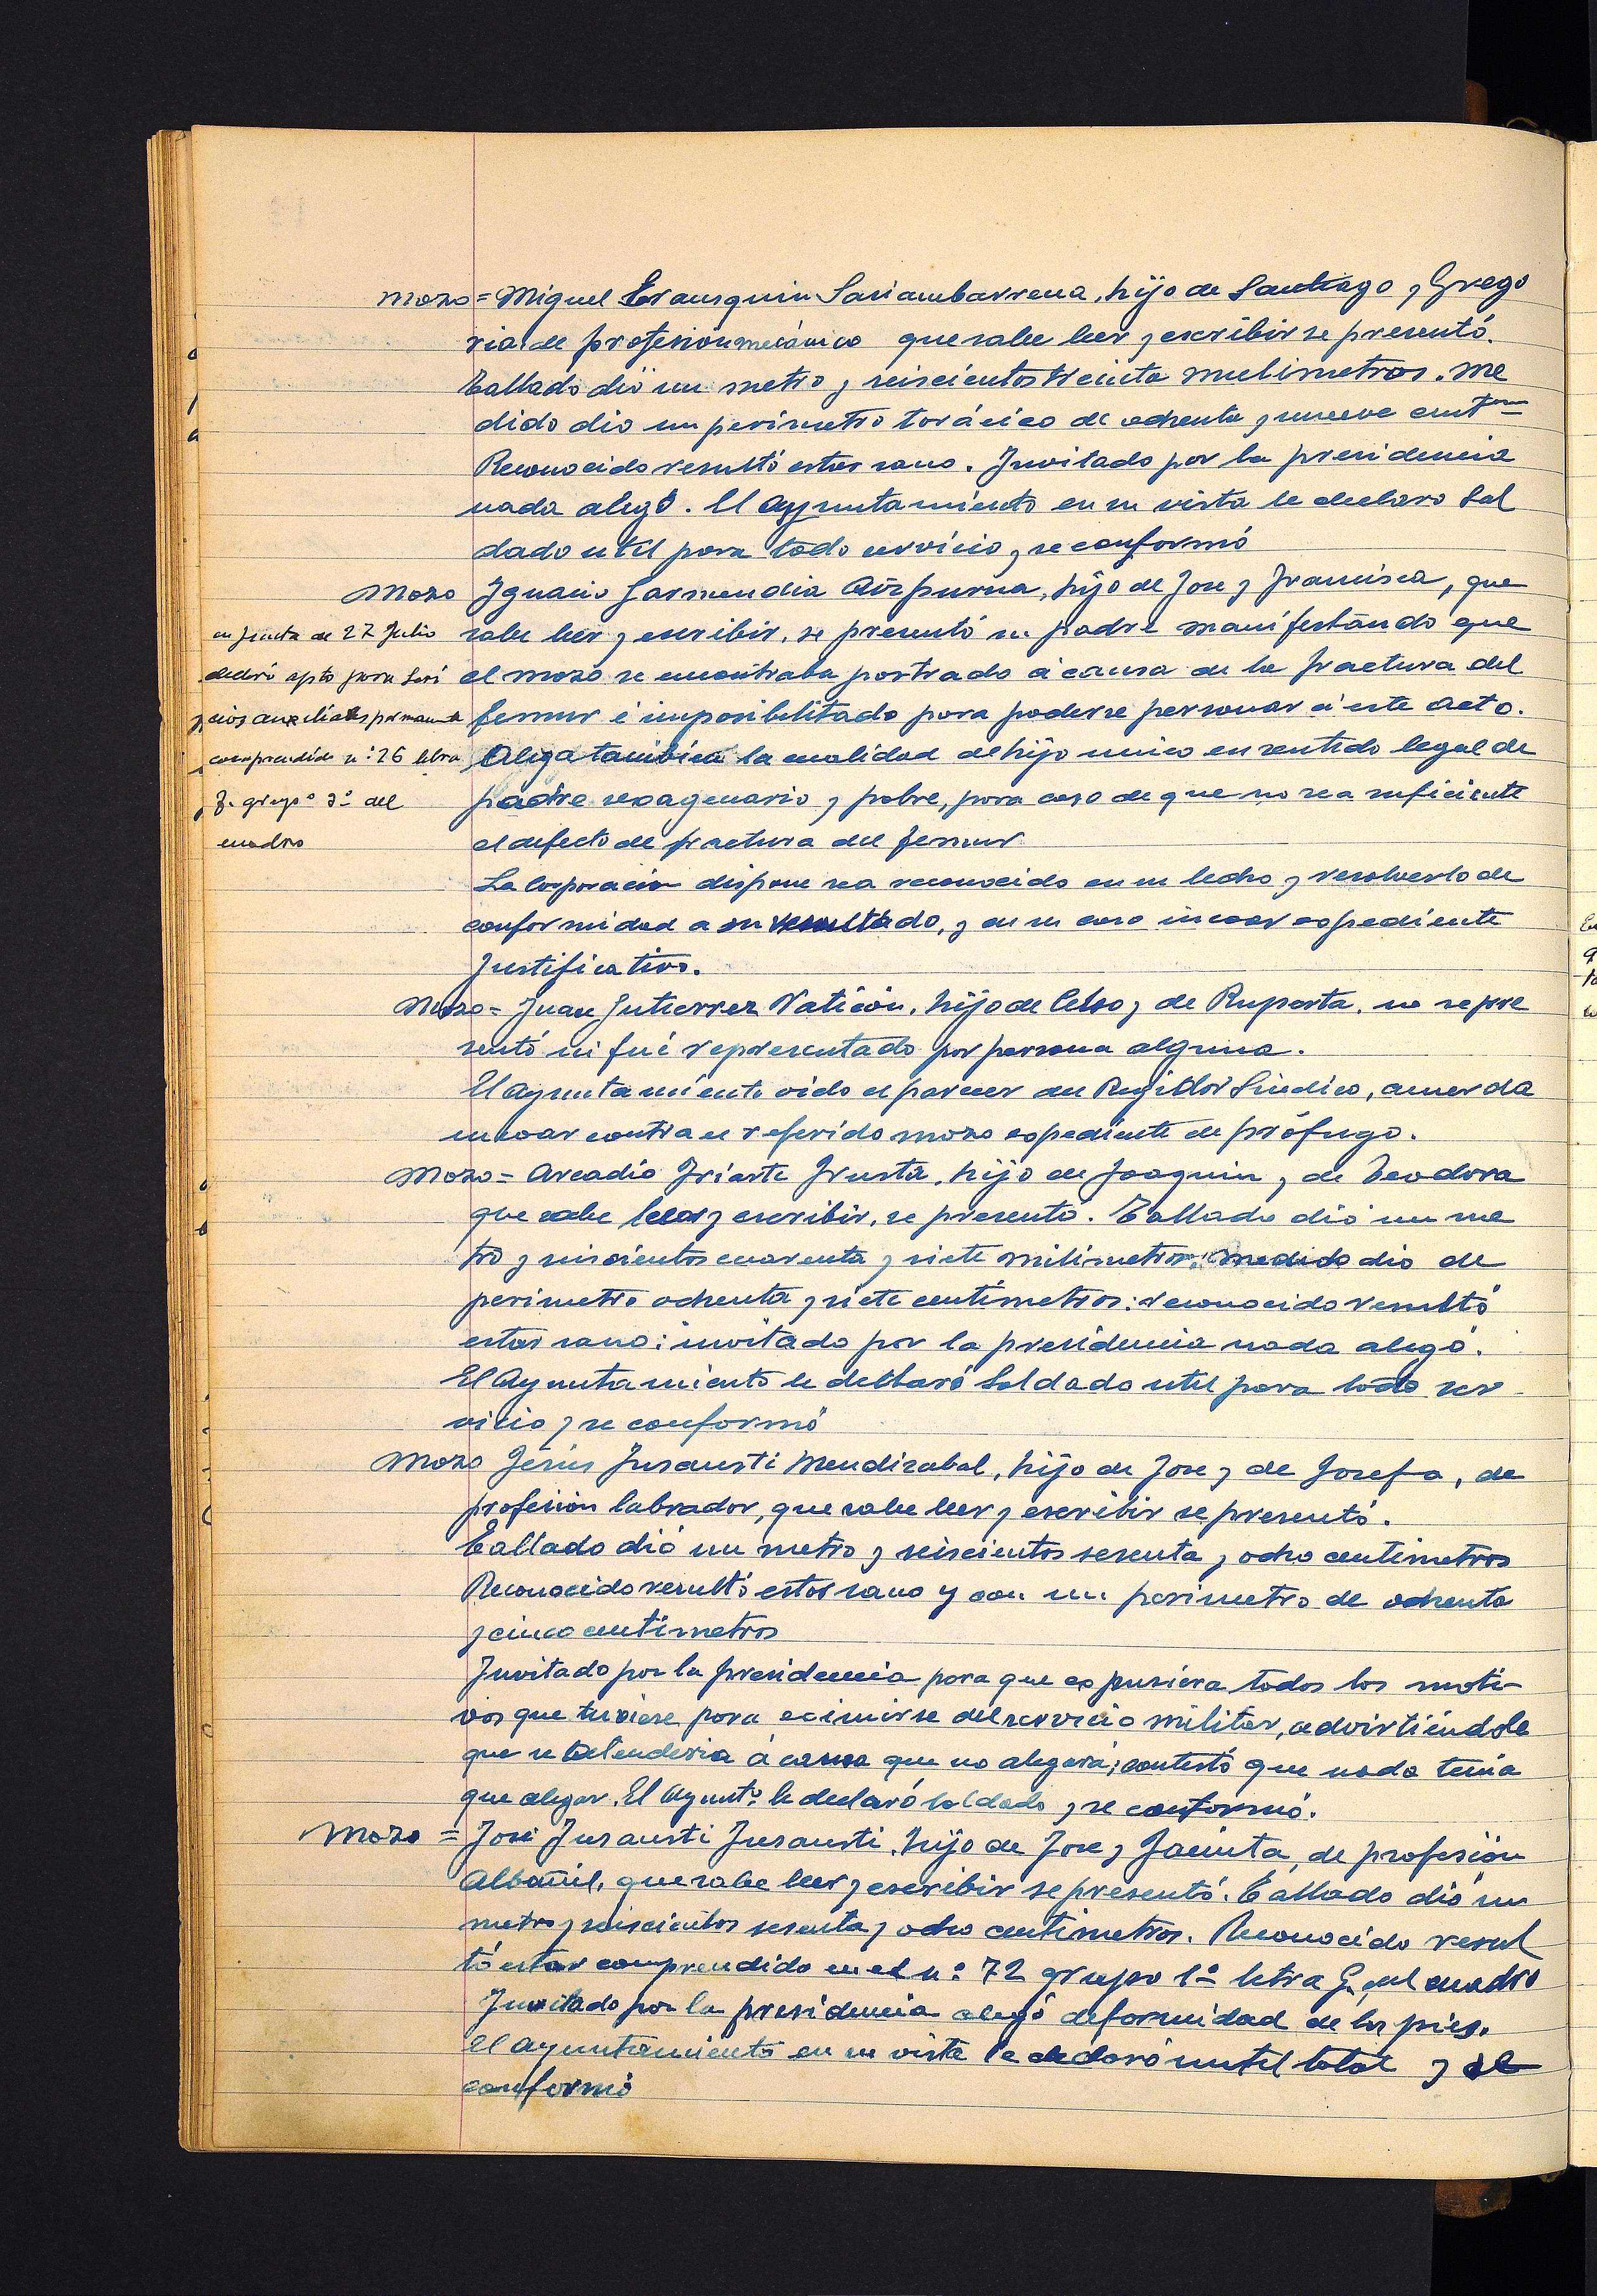 Mozo = Miguel Eransquin Sariambarrena, hijo de Santiago y Grego
ria, de profesion mecánico que sabe leer y escribir se presentó.
Tallado dió un metro y seiscientos treinta milimetros. Me
dido dio un perimetro torácico de ochenta y nueve cent.
Reconocido resultó estar sano. Invitado por la presidencia
nada alegó. El Ayuntamiento en su vista le declaro Sol
dado util para todo servicio y se conformó
Mozo Ignacio Garmendia Aizpurua, hijo de Jose y Francisca, que
sabe leer y escribir, se presentó su padre manifestando que
el mozo se encontraba postrado á causa de la fractura del
femur é imposibilitado para poderse personar á este acto.
Alega tambien la cualidad de hijo unico en sentido legal de
padre sexagenario y pobre, para caso de que no sea suficiente
el defecto de fractura del femur
en junta de 27 Julio
declaró apto para Servi
cios auxiliares
comprendido nº 26 letra
F. grupo 3º del
cuadro
La Corporacion dispone sea reconocido en su lecho y resolverlo de
conformidad a su resultado, y en su caso incoar espediente
justificativo.
Mozo = Juan Gutierrez Vatición, hijo de Celso y de Ruperta, no se pre
sentó ni fué representado por persona alguna.
El Ayuntamiento oido el parecer del Regidor Sindico, acuerda
incoar contra el referido mozo espediente de prófugo.
Mozo = Arcadio Iriarte Irusta, hijo de Joaquin y de Teodora
que sabe leer y escribir, se presentó. Tallado dió un me
tro y seiscientos cuarenta y siete milimetros, medido dio de
perimetro ochenta y siete centímetros: reconocido resultó
estar sano: invitado por la presidencia nada alegó.
El Ayuntamiento le declaró Soldado util para todo ser
vicio y se conformó
Mozo Jesús Insausti Mendizabal, hijo de Jose y de Josefa, de
profesion labrador, que sabe leer y escribir se presentó.
Tallado dió un metro y seiscientos sesenta y ocho centimetros
Reconocido resultó estar sano y con un perimetro de ochenta
y cinco centimetros
Invitado por la presidencia para que espusiera todos los moti-
vos que tuviese para eximirse del servicio militar, advirtiéndole
que no se atenderia á causa que no alegara; contestó que nada tenia
que alegar. El Ayuntº le declaró soldado y se conformó.
Mozo = José Insausti Insausti, hijo de Jose y Jacinta, de profesión
Albañil, que sabe leer y escribir se presentó. Tallado dió un
metro y seiscientos sesenta y ocho centimetros. Reconocido resul
tó estar comprendido en el nº 72 grupo 1º letra G. del cuadro
Invitado por la presidencia alegó deformidad de los pies.
El Ayuntamiento en su vista le declaró inutil total y se
conformó